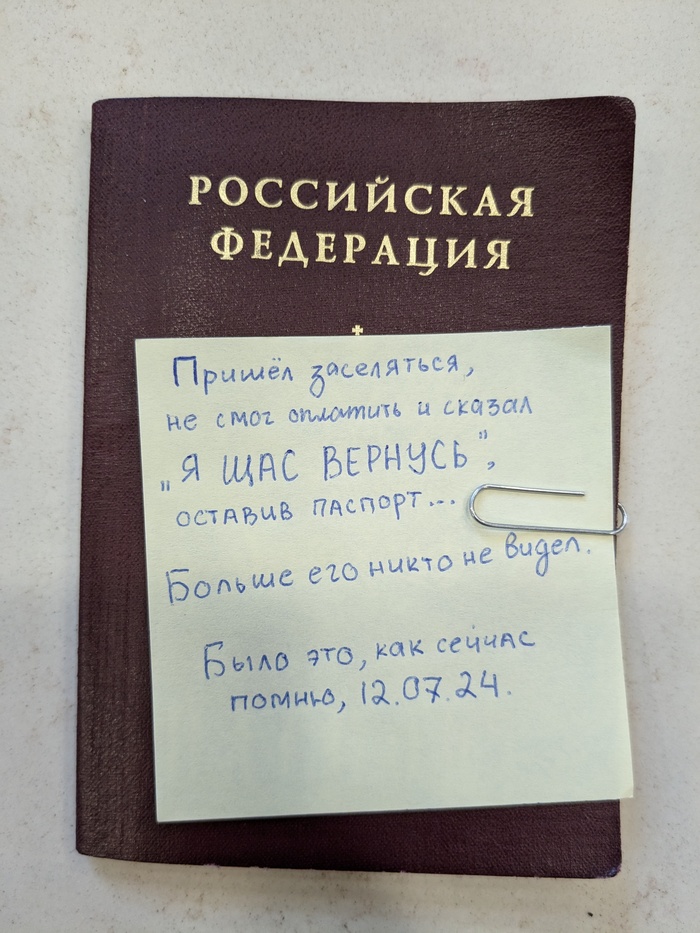 РОССИЙСКАЯ
ФЕДЕРАЦИЯ
Пришёл заселяться,
не смог оплатить и сказал
„Я ЩАС ВЕРНУСЬ”,
оставив паспорт...
Больше его никто не видел.
Было это, как сейчас
помню, 12.07.24.